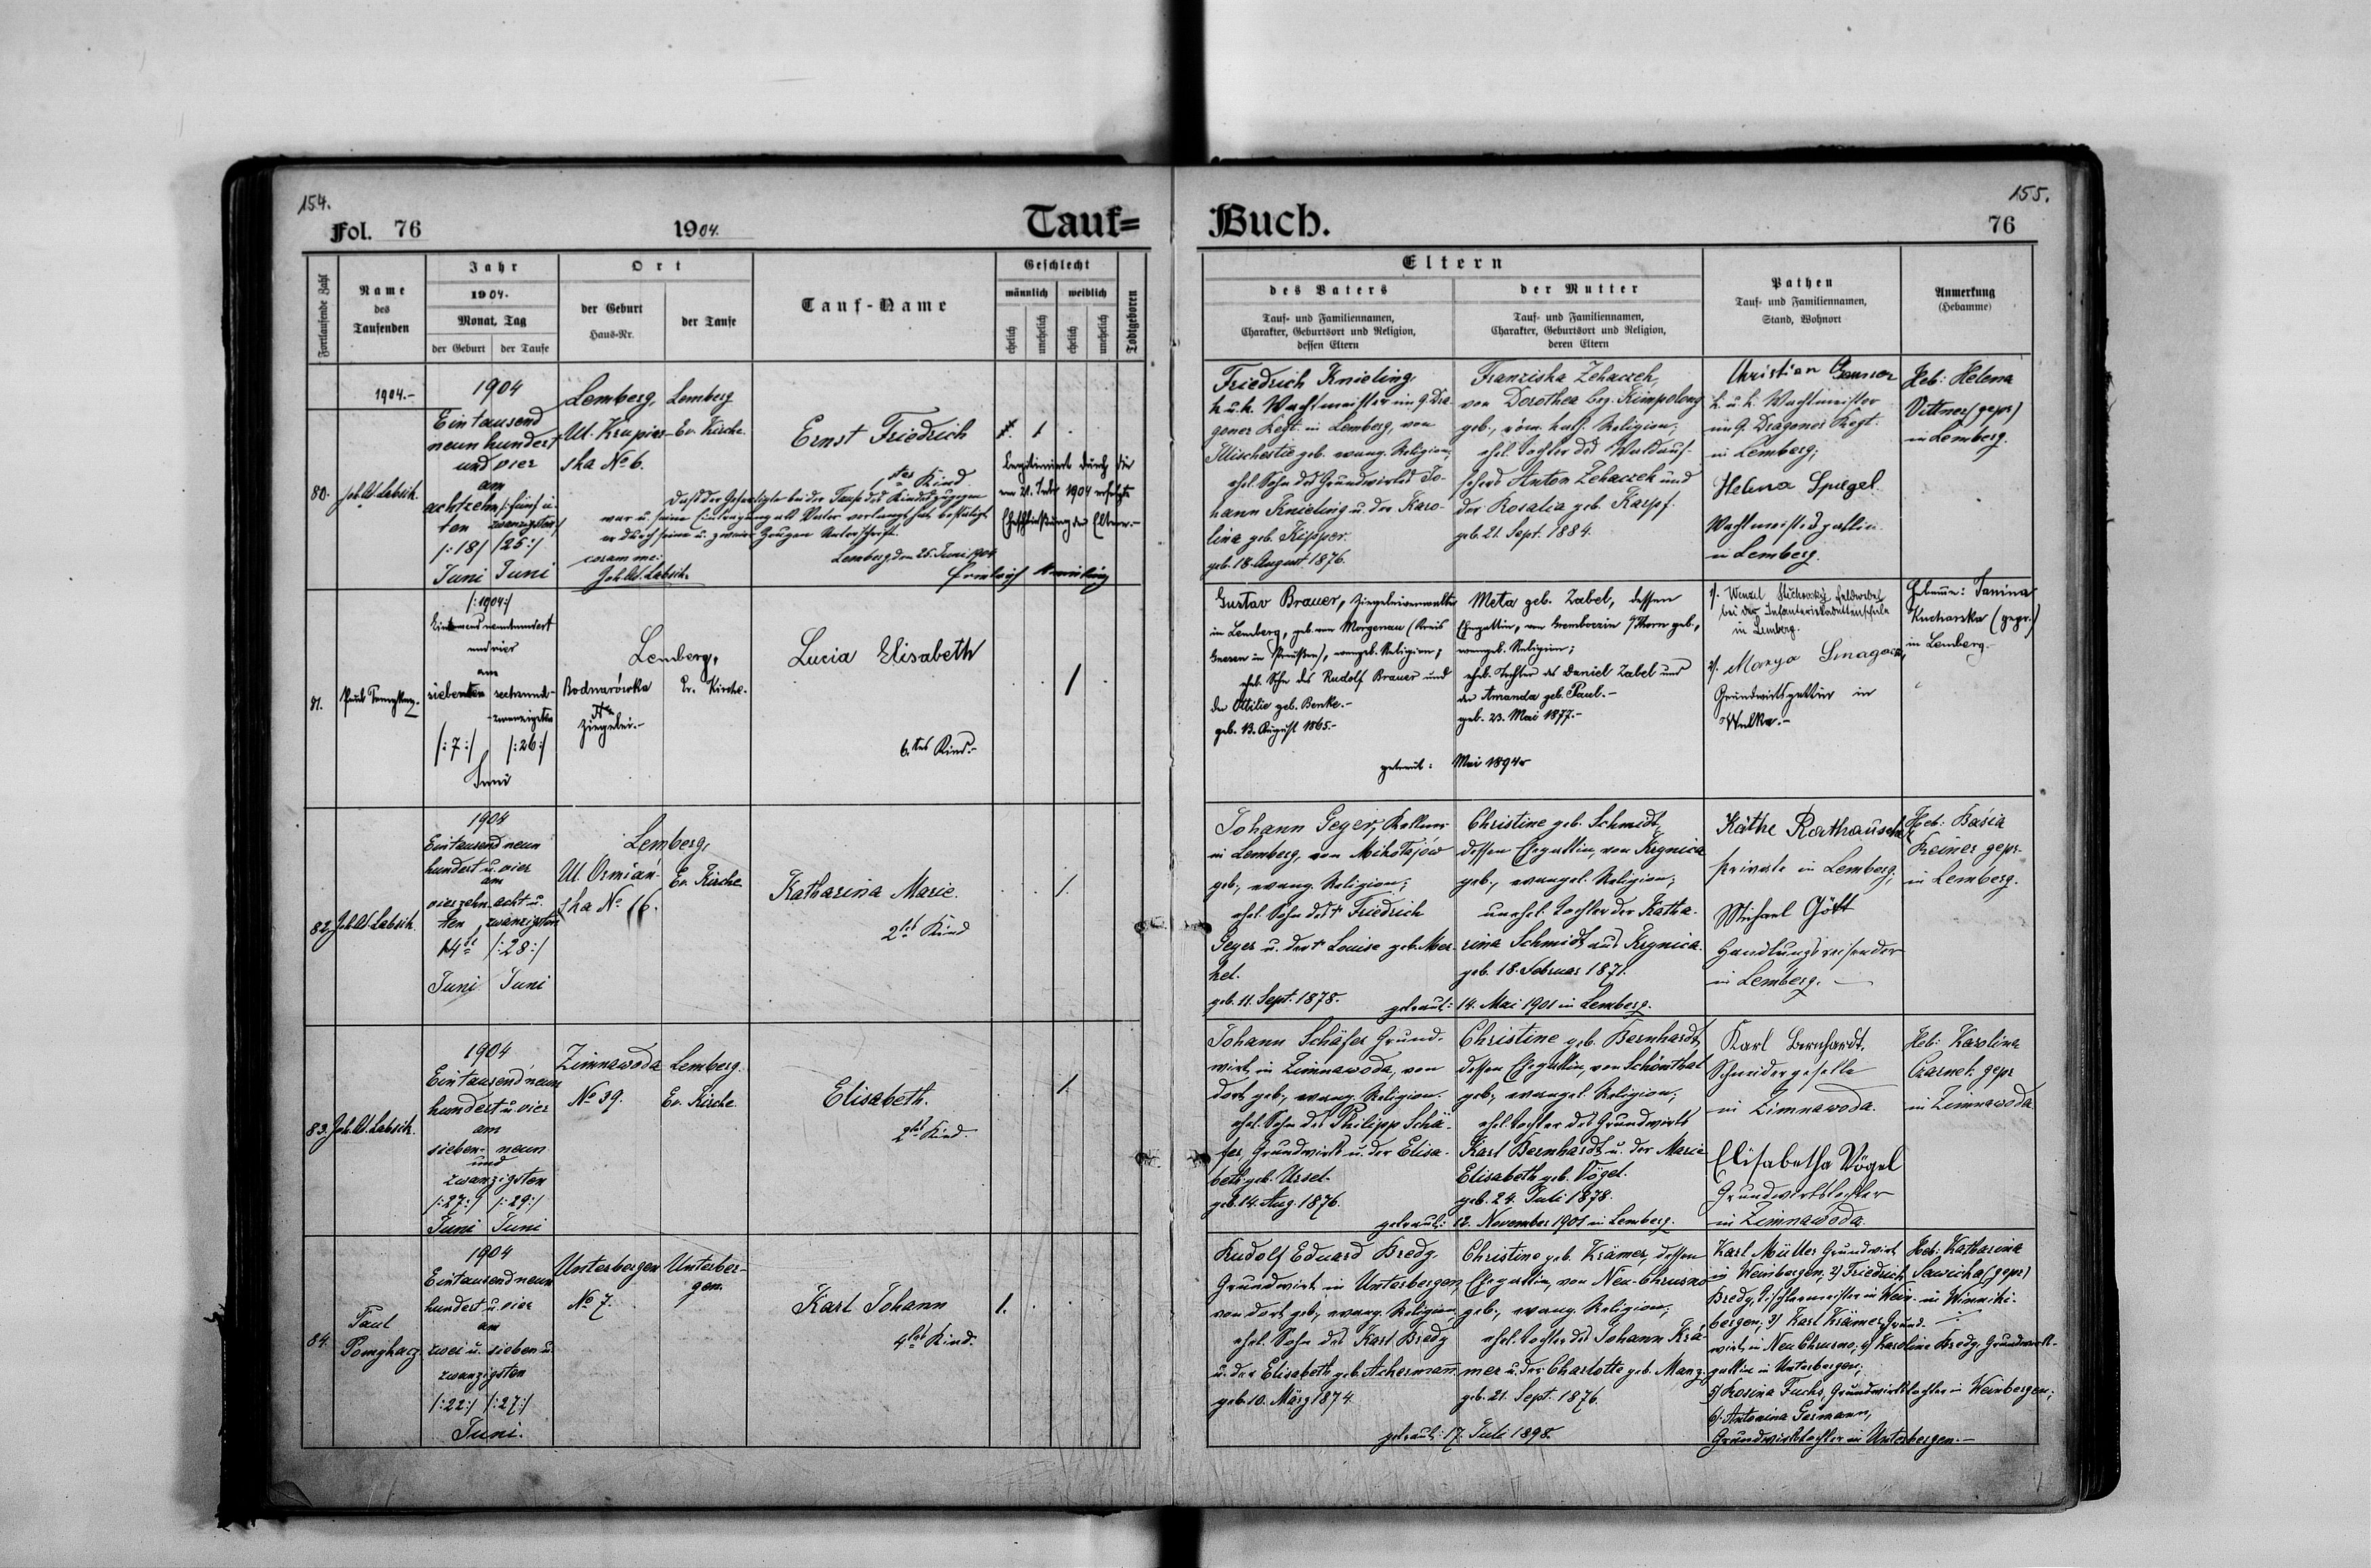 154.
Fol. 76
1904.
Tauf=
Fortlaufende Zahl
Name
des
Taufenden
Jahr
1904.
Monat, Tag
der Geburt
der Taufe
Ort
der Geburt
Haus-Nr.
der Taufe
Tauf-Name
Geschlecht
männlich
weiblich
ehelich
unehelich
ehelich
unehelich
Todtgeboren
1904.-
80.
Joh. W. Labsik.
1904
Ein tausend
neun hundert
und vier
am
achtzehn /:fünf u.
ten zwanzigsten/
/:18/ /25:/
Juni Juni
Lemberg,
Ul. Krupiar-
ska No 6.
Lemberg
Ev. Kirche.
Ernst Friedrich
1tes Kind
Daß der Gefertigte bei der Taufe des Kindes zugegen
war u. seine Eintragung als Vater verlangt hat, bestätigt
er durch seine u. zweier Zeugen Unterschrift.
coram me:
Joh. W. Labsik.
Lemberg, den 25. Juni 1904
Friedrich Knieling
1
Legitimiert durch die
am 21. 1904 erfolgte
Eheschließung der Eltern.-
81.
Paul
/:1904:/
Eintausend neunhundert
und vier
am
siebenten sechsund-
-zwanzigsten
/:7:/ /:26:/
Juni
Lemberg,
Bodnarówka
Ziegelei.-
Ev. Kirche.
Lucia Elisabeth
6.tes Kind.-
1
82.
Joh. W. Labsik.
1904
Ein tausend neun
hundert u. vier
am
vierzehn acht u.
ten zwanzigsten
14te /:28:/
Juni Juni
Lemberg,
Ul. Ormiań-
ska No 16.
Ev. Kirche
Katharina Marie.
2tes Kind
1.
83.
Joh. W. Labsik.
1904
Ein tausend neun
hundert u. vier
am
sieben- neun
und
zwanzigsten
/:27:/ /:29:/
Juni Juni
Zimnawoda
No 39.
Lemberg.
Ev. Kirche.
Elisabeth.
2tes Kind.
1.
84.
Paul
1904
Ein tausend neun
hundert u. vier
am
zwei u. sieben u.
zwanzigsten
/:22:/ /:27:/
Juni.
Unterbergen
No 7.
Unterber-
gen.
Karl Johann
4tes Kind.
1.
155.
Buch.
76
Eltern
des Vaters
Tauf- und Familiennamen,
Charakter, Geburtsort und Religion,
dessen Eltern
der Mutter
Tauf- und Familiennamen,
Charakter, Geburtsort und Religion,
deren Eltern
Pathen
Tauf- und Familiennamen,
Stand, Wohnort
Anmerkung
(Hebamme)
Friedrich Knieling,
k. u. k. Wachtmeister im 9. Dra-
goner Regt. in Lemberg, von
Illischestie geb. evang. Religion;
ehel. Sohn des Grundwirtes Jo-
hann Knieling u. der Karo-
lina geb. Kipper.
geb. 18. August 1876.
Franziska Zehaczek,
von Dorothea Bez. Kimpolung
geb., röm. kath. Religion;
ehel. Tochter des Waldauf-
sehers Anton Zehaczek und
der Rosalia geb. Karpf.
geb. 21. Sept. 1884.
Christian
k. u. k. Wachtmeister
im 9. Dragoner Regt.
in Lemberg;
Helena Spiegel
Wachtmeistersgattin
in Lemberg.
Heb: Helena
Vittner (gepr)
in Lemberg.
Gustav Brauer, Ziegeleiverwalter
in Lemberg, geb. von Morgenau (Kreis
Gnesen in Preußen), evangel. Religion;
ehel. Sohn des Rudolf Brauer und
der Ottilie geb. Benke.-
geb. 13. August 1865.-
Meta geb. Zabel, dessen
Ehegattin, von Gremboczin /Thorn geb.,
evangel. Religion;
ehel. Tochter des Daniel Zabel und
der Amanda geb. Paul.-
geb. 23. Mai 1877.-
getraut: Mai 1894
1/. Wenzel Feldwebel
bei der Infanteriekadettenschule
in Lemberg.
2/. Marya
Grundwirtsgattin in
Wulka.-
Hebamme: Janina
Kucharska (gepr.)
in Lemberg.-
Johann Geyer, Kellner
in Lemberg, von Mikołajów
geb., evang. Religion;
ehel. Sohn des † Friedrich
Geyer u. der † Louise geb. Mer-
kel.
geb. 11. Sept. 1878.
Christine geb. Schmidt,
dessen Ehegattin, von Krynica
geb., evangel. Religion;
unehel. Tochter der Katha-
rina Schmidt aus Krynica.
geb. 18. Februar 1871.
getraut: 14. Mai 1901 in Lemberg.
Käthe Rathauscher
Private in Lemberg;
Michael Gött
Handlungsreisender
in Lemberg.
Heb: Basia
Reiner gepr.
in Lemberg.
Johann Schäfer Grund-
wirt in Zimnawoda, von
dort geb., evang. Religion.
ehel. Sohn des Philipp Schä-
fer, Grundwirt u. der Elisa-
beth geb. Ursel.
geb. 14. Aug. 1876.
Christine geb. Bernhardt,
dessen Ehegattin, von Schönthal
geb., evangel. Religion;
ehel. Tochter des Grundwirts
Karl Bernhardt u. der Marie
Elisabeth geb. Vögel.
geb. 24. Juli 1878.
getraut: 12. November 1901 in Lemberg.
Karl Bernhardt.
Schneidergeselle
in Zimnawoda.
Elisabetha Vögel
Grundwirtstochter
in Zimnawoda.
Heb: Karolina
Czarnek. gepr
in Zimnawoda
Rudolf Eduard Bredy,
Grundwirt in Unterbergen,
von dort geb., evang. Religion;
ehel. Sohn des Karl Bredy
u. der Elisabeth geb. Ackermann
geb. 10. März 1874.
Christine geb. Krämer, dessen
Ehegattin, von Neu-Chrusno
geb., evang. Religion;
ehel. Tochter des Johann Krä-
mer u. der Charlotte geb. Manz.
geb. 21. Sept. 1876.
getraut: 17. Juli 1898.
Karl Müller Grundwirt
in Weinbergen, 2) Friedrich
Bredy, Tischlermeister in Wein-
bergen; 3) Karl Krämer Grund-
wirt in Neu Chrusno; 4) Karoline Bredy, Grundwirts-
gattin in Unterbergen;
5) Rosina Fuchs, Grundwirtstochter in Weinbergen;
6/. Antonina Germann,
Grundwirtstochter in Unterbergen.-
Heb: Katharina
Sawicka (gepr)
in Winniki.